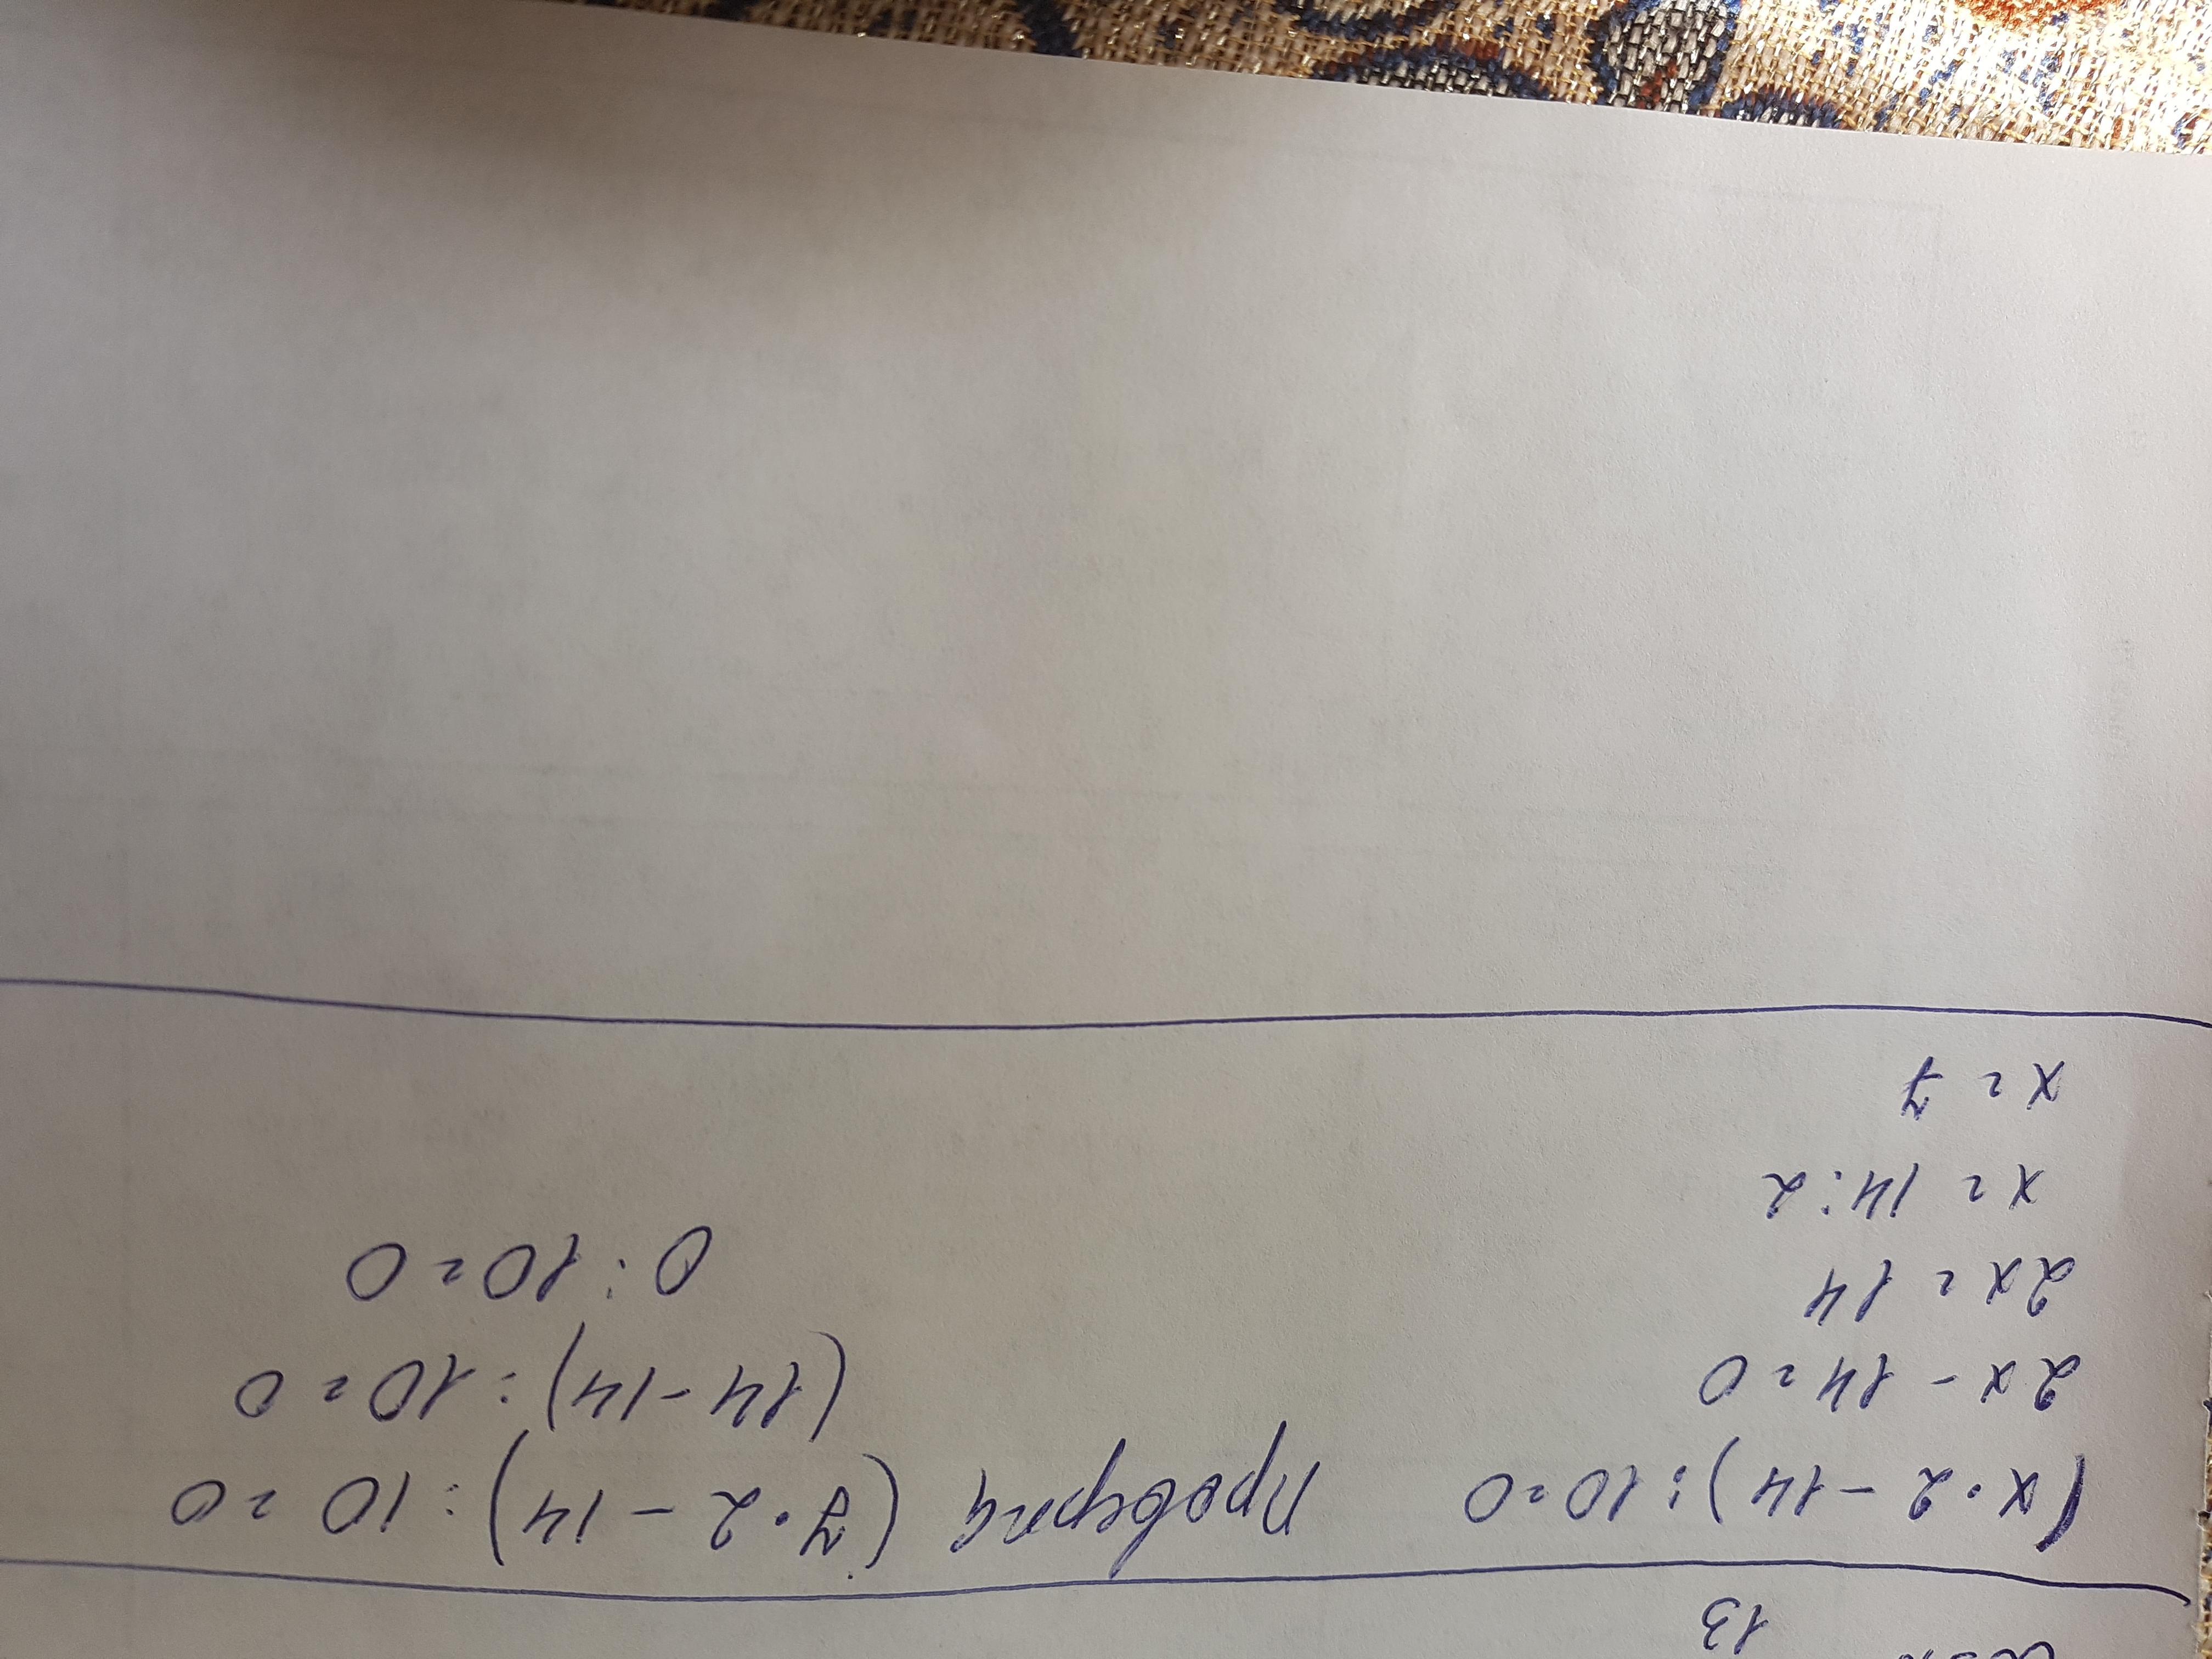 13
(x · 2 - 14) : 10 = 0 Проверка (7 · 2 - 14) : 10 = 0
2x - 14 = 0 (14 - 14) : 10 = 0
2x = 14 0 : 10 = 0
x = 14 : 2
x = 7